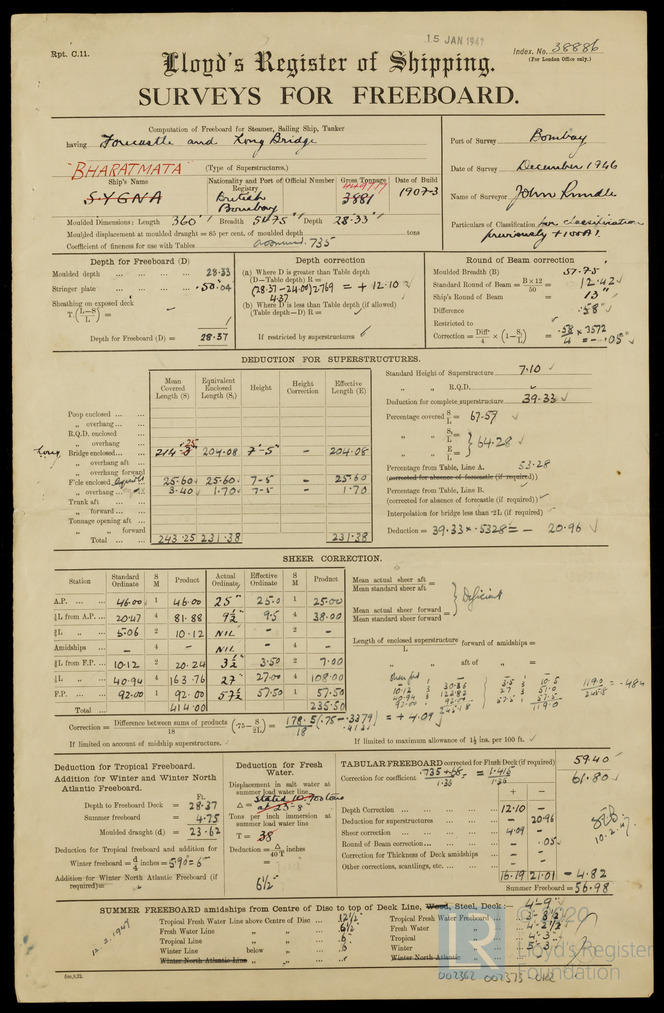 15 JAN 1947
Rpt. C.11.
Index. No. 38886
(For London Office only.)
Lloyd's Register of Shipping.
SURVEYS FOR FREEBOARD.
Computation of Freeboard for Steamer, Sailing Ship, Tanker
having Forecastle and Long Bridge
"BHARATMATA" (Type of Superstructures.)
Ship's Name Nationality and Port of Registry Official Number Gross Tonnage Date of Build
SYGNA British Bombay 3881 1907-3
Port of Survey Bombay
Date of Survey December 1946
Name of Surveyor John Rundle
Particulars of Classification for classification
previously +100A1.
Moulded Dimensions: Length 360' Breadth 57.75 Depth 28.33'
Moulded displacement at moulded draught = 85 per cent. of moulded depth tons
Coefficient of fineness for use with Tables assumed .735
Depth for Freeboard (D)
Moulded depth 28.33
Stringer plate .50 .04
Sheathing on exposed deck
T (L-S/L) =
Depth for Freeboard (D) = 28.37
Depth correction
(a) Where D is greater than Table depth
(D—Table depth) R =
(28.37-24.00) 2.769 = + 12.10
4.37
(b) Where D is less than Table depth (if allowed)
(Table depth—D) R =
If restricted by superstructures
Round of Beam correction
Moulded Breadth (B) 57.75
Standard Round of Beam = B × 12/50 = 12.42
Ship's Round of Beam = 13"
Difference .58
Restricted to
Correction = Diff./4 × (1-S/L) = .58/4 × .3572 = - .05
DEDUCTION FOR SUPERSTRUCTURES.
Mean Covered Length (S) Equivalent Enclosed Length (S₁) Height Height Correction Effective Length (E)
Poop enclosed
" overhang
R.Q.D. enclosed
" overhang
Long Bridge enclosed 214.25 204.08 7'-5" - 204.08
" overhang aft
" overhang forward
F'cle enclosed 25.60 25.60 7-5 - 25.60
" overhang 3.40 1.70 7-5 - 1.70
Trunk aft
" forward
Tonnage opening aft
" " forward
Total 243.25 231.38 231.38
Standard Height of Superstructure 7.10
" " R.Q.D.
Deduction for complete superstructure 39.33
Percentage covered S/L = 67.57
" " S₁/L =
" " E/L = } 64.28
Percentage from Table, Line A. 53.28
(corrected for absence of forecastle (if required))
Percentage from Table, Line B.
(corrected for absence of forecastle (if required))
Interpolation for bridge less than ·2L (if required)
Deduction = 39.33 × .5328 = - 20.96
SHEER CORRECTION.
Station Standard Ordinate S M Product Actual Ordinate Effective Ordinate S M Product
A.P. 46.00 1 46.00 25" 25.0 1 25.00
⅙L from A.P. 20.47 4 81.88 9½" 9.5 4 38.00
⅓L " 5.06 2 10.12 NIL - 2 -
Amidships - 4 - NIL - 4 -
⅓L from F.P. 10.12 2 20.24 3½" 3.50 2 7.00
⅙L " 40.94 4 163.76 27" 27.00 4 108.00
F.P. 92.00 1 92.00 57½ 57.50 1 57.50
Total 414.00 235.50
Mean actual sheer aft =
Mean standard sheer aft
Mean actual sheer forward =
Mean standard sheer forward
} Deficient
Length of enclosed superstructure/L forward of amidships =
" " aft of " =
10.12 3 30.36 3.5 3 10.5
40.94 3 122.82 27 3 81.0
92.00 1 92.00 57.5 1 27.5
245.18 119.0
119.0/245.8 = .484
Correction = Difference between sums of products/18 (·75 - S/2L) = 178.5/18 (.75-.3379) = + 4.09
.4121
If limited on account of midship superstructure.
If limited to maximum allowance of 1½ ins. per 100 ft.
Deduction for Tropical Freeboard.
Addition for Winter and Winter North Atlantic Freeboard.
Ft.
Depth to Freeboard Deck = 28.37
Summer freeboard = 4.75
Moulded draught (d) = 23.62
Deduction for Tropical freeboard and addition for
Winter freeboard = d/4 inches = 5.90 = 6"
Addition for Winter North Atlantic Freeboard (if required) =
Deduction for Fresh Water.
Displacement in salt water at summer load water line
Δ = stated 10,700 tons at 23'-8"
Tons per inch immersion at summer load water line
T = 38
Deduction = Δ/40T inches
6½"
TABULAR FREEBOARD corrected for Flush Deck (if required) 59.40
Correction for coefficient .735+.68/1.36 = 1.415/1.36 61.80
+ -
Depth Correction 12.10 -
Deduction for superstructures - 20.96
Sheer correction 4.09 -
Round of Beam correction - .05
Correction for Thickness of Deck amidships
Other corrections, scantlings, etc.
16.19 21.01 - 4.82
Summer Freeboard = 56.98
10.2.47.
SUMMER FREEBOARD amidships from Centre of Disc to top of Deck Line, Wood, Steel, Deck:— 4'-9"
Tropical Fresh Water Line above Centre of Disc 12½"
Fresh Water Line " " 6½
Tropical Line " " 6"
Winter Line below " 6
Winter North Atlantic Line " "
Tropical Fresh Water Freeboard 3-8½
Fresh Water " 4-2½
Tropical " 4-3
Winter " 5-3
Winter North Atlantic "
12.2.1947
LR © 2020
Lloyd's Register
Foundation
002362 002375 0162